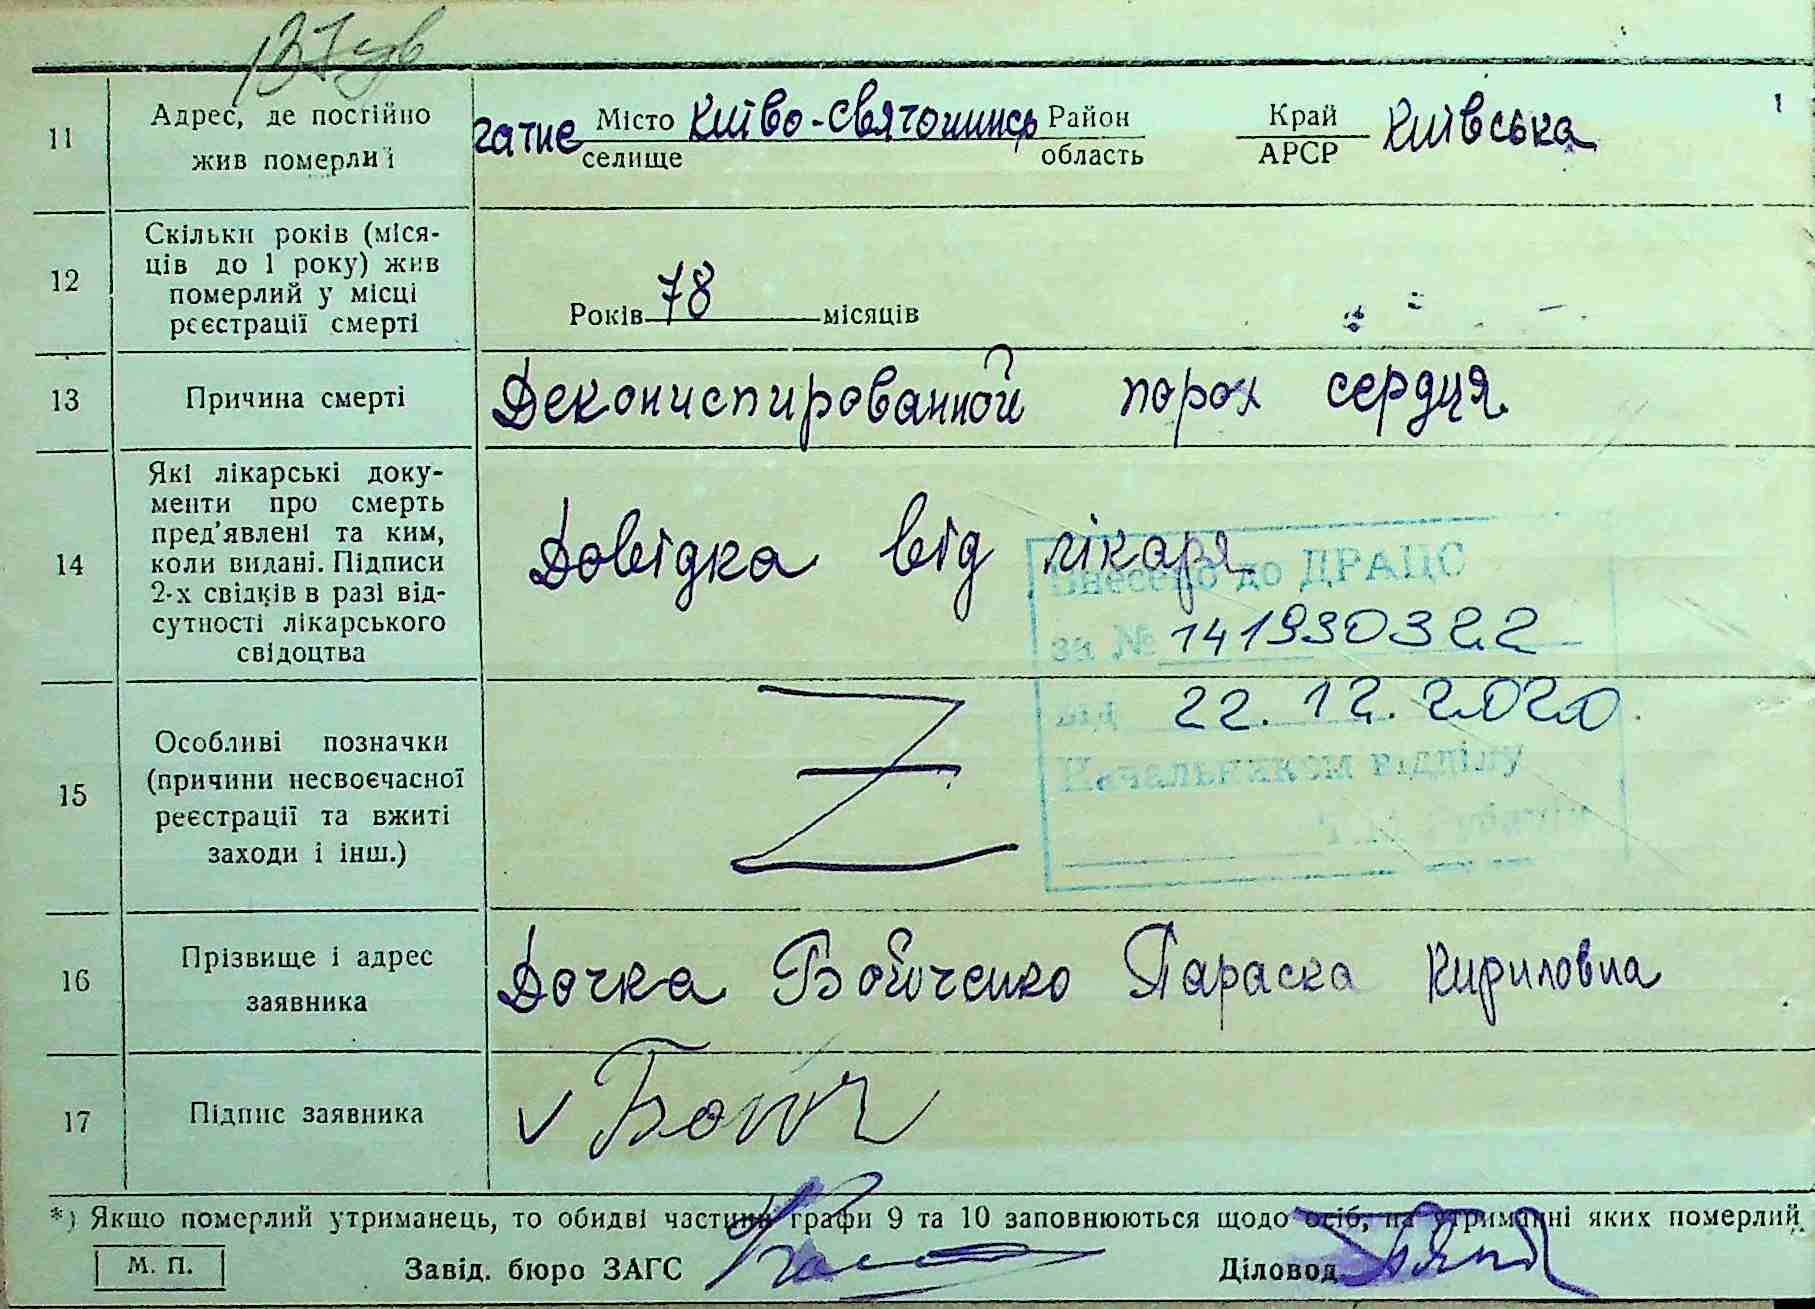 11 Адрес, де постійно жив померлиі
гатне Місто селище Київо-Святошинсь Район область Край АРСР Київська
12 Скільки років (міся-
ців до 1 року) жив
померлий у місці
реєстрації смерті
Років 78 місяців
13 Причина смерті
Декониспированной порок сердця
14 Які лікарські доку-
менти про смерть
пред'явлені та ким,
коли видані. Підписи
2-х свідків в разі від-
сутності лікарського
свідоцтва
Довідка від лікаря
Внесено до ДРАЦС
за № 141930322
від 22.12.2020.
Начальником відділу
15 Особливі позначки
(причини несвоєчасної
реєстрації та вжиті
заходи і інш.)
Z
16 Прізвище і адрес
заявника
Дочка Бойченко Параска Кириловна
17 Підпис заявника
v Бойч
*) Якщо померлий утриманець, то обидві частини графи 9 та 10 заповнюються щодо осіб, на утриманні яких померлий.
М. П. Завід. бюро ЗАГС Діловод